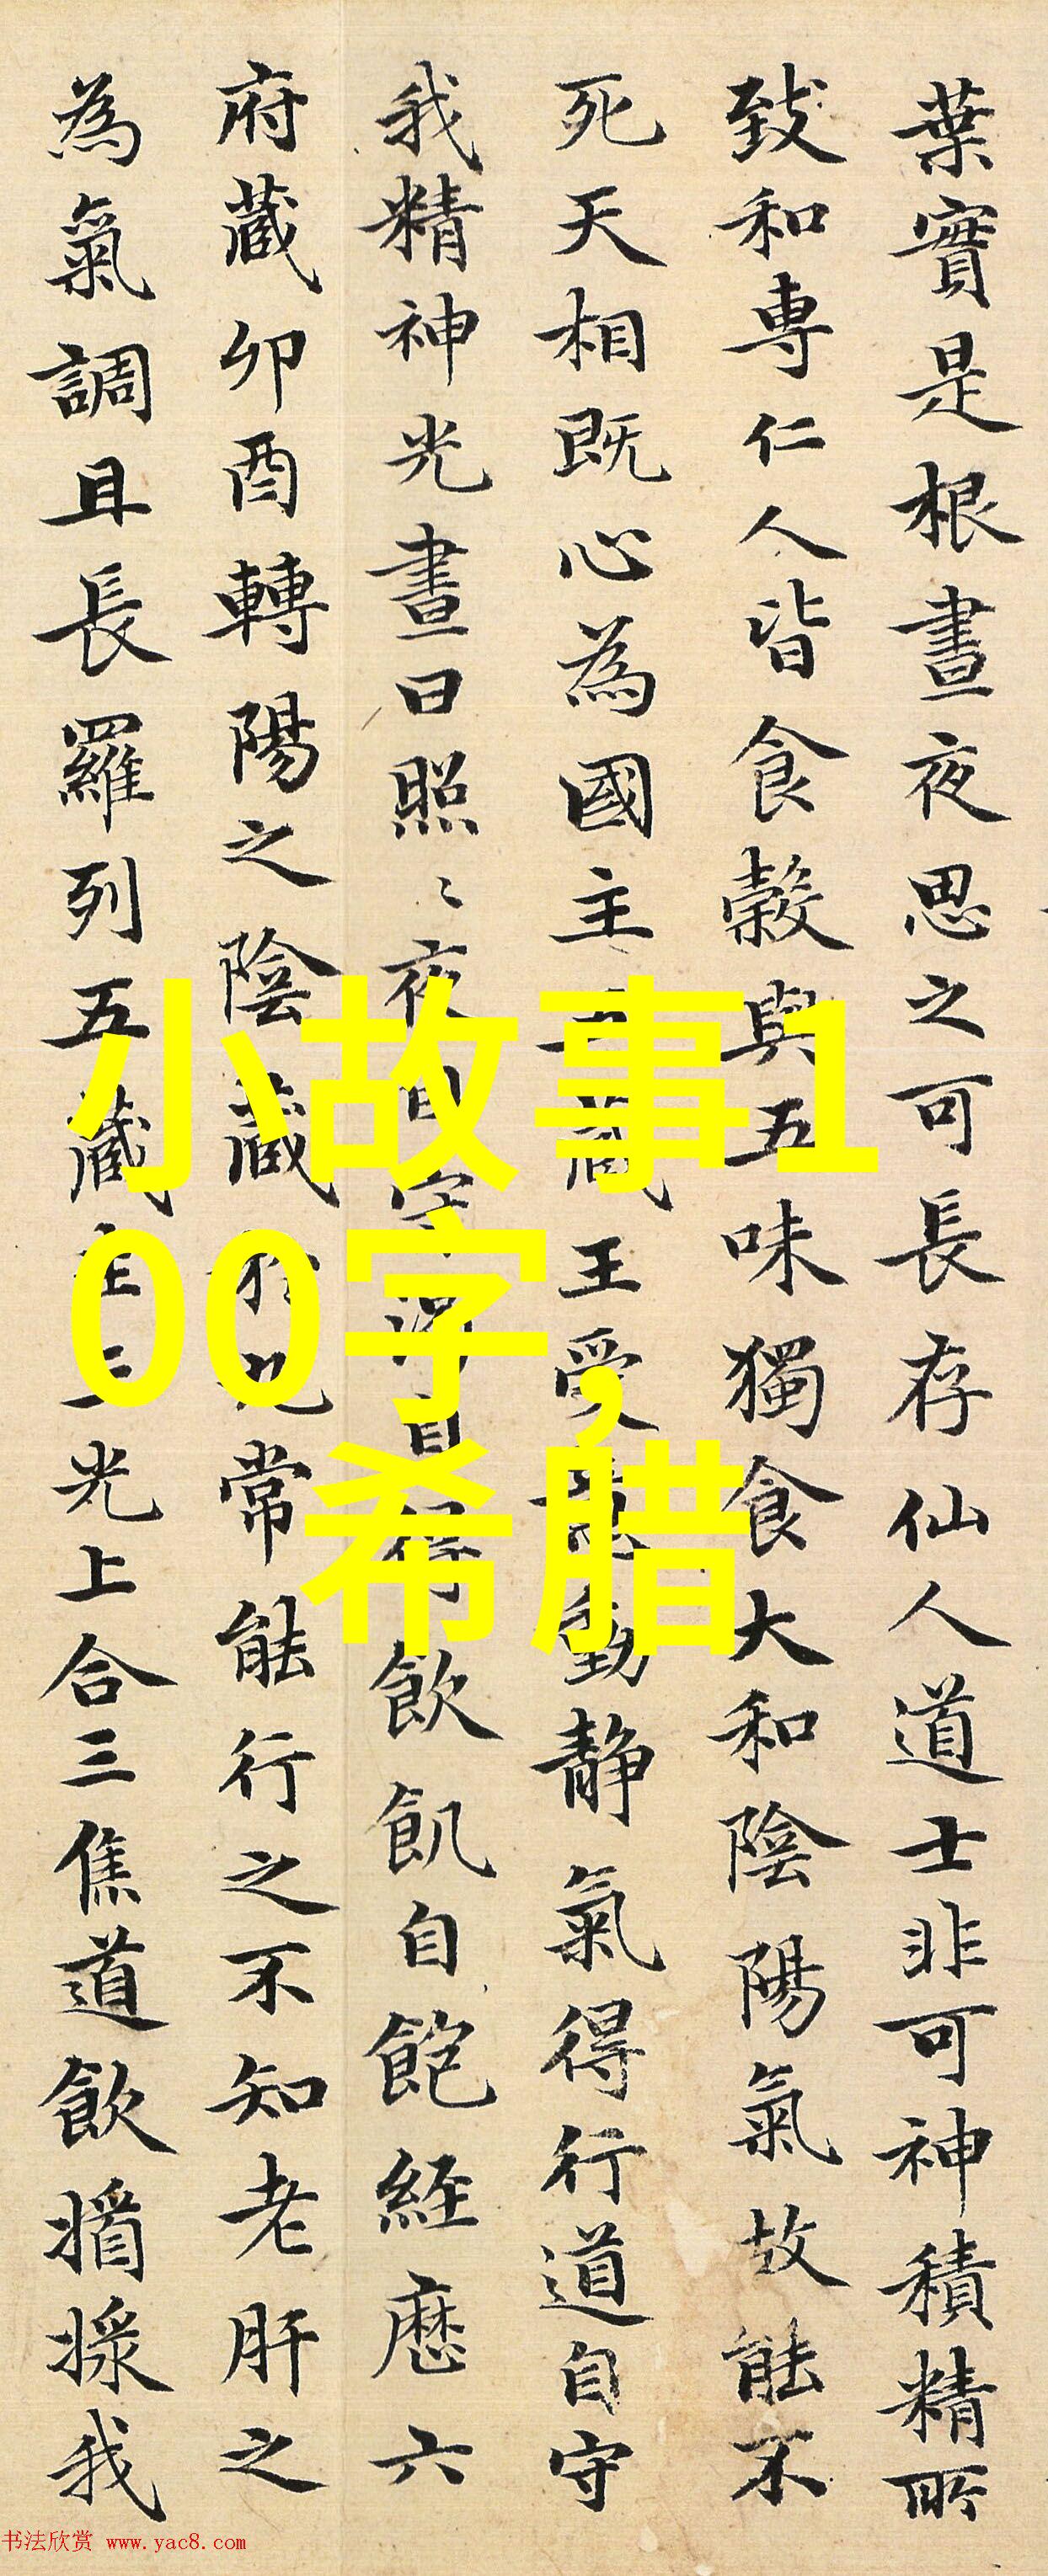 葉實是根晝夜思之可長存仙人道士非可神積精所
致和專仁人皆食穀與五味獨食大和陰陽氣故能不
死天相既心為國主五藏王受意動静氣得行道自守
我精神光晝日照〻夜自守渴自得飲飢自飽經歷六
府藏卯酉轉陽之陰藏於九常能行之不知老肝之
為氣調且長羅列五藏主三光上合三焦道飲醬漿我
小故事1
00字,
希腊
书法欣赏 www.yac8.com